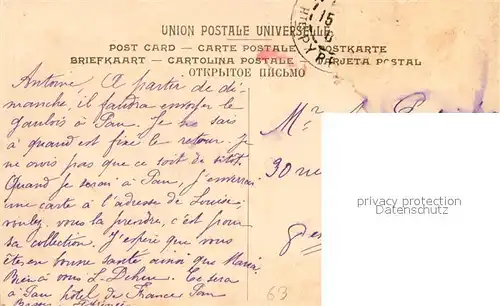 UNION POSTALE UNIVERSELLE
POST CARD – CARTE POSTALE – POSTKARTE
BRIEFKAART – CARTOLINA POSTALE – TARJETA POSTAL
ОТКРЫТОЕ ПИСЬМО
Antoine, A partir de di-
manche, il faudra envoyer le
gaulois à Pau. Je ne sais
à quand est fixé le retour. Je
ne crois pas que ce soit de sitôt.
Quand je serai à Pau, j'enverrai
une carte à l'adresse de Louise
voulez-vous la prendre, c'est pour
sa collection. J'espère que vous
êtes en bonne santé ainsi que Maria
Bien à vous L. Ce sera
à Pau hôtel de France Pau
Basses
Mr
30 rue
privacy protection
Datenschutz
63